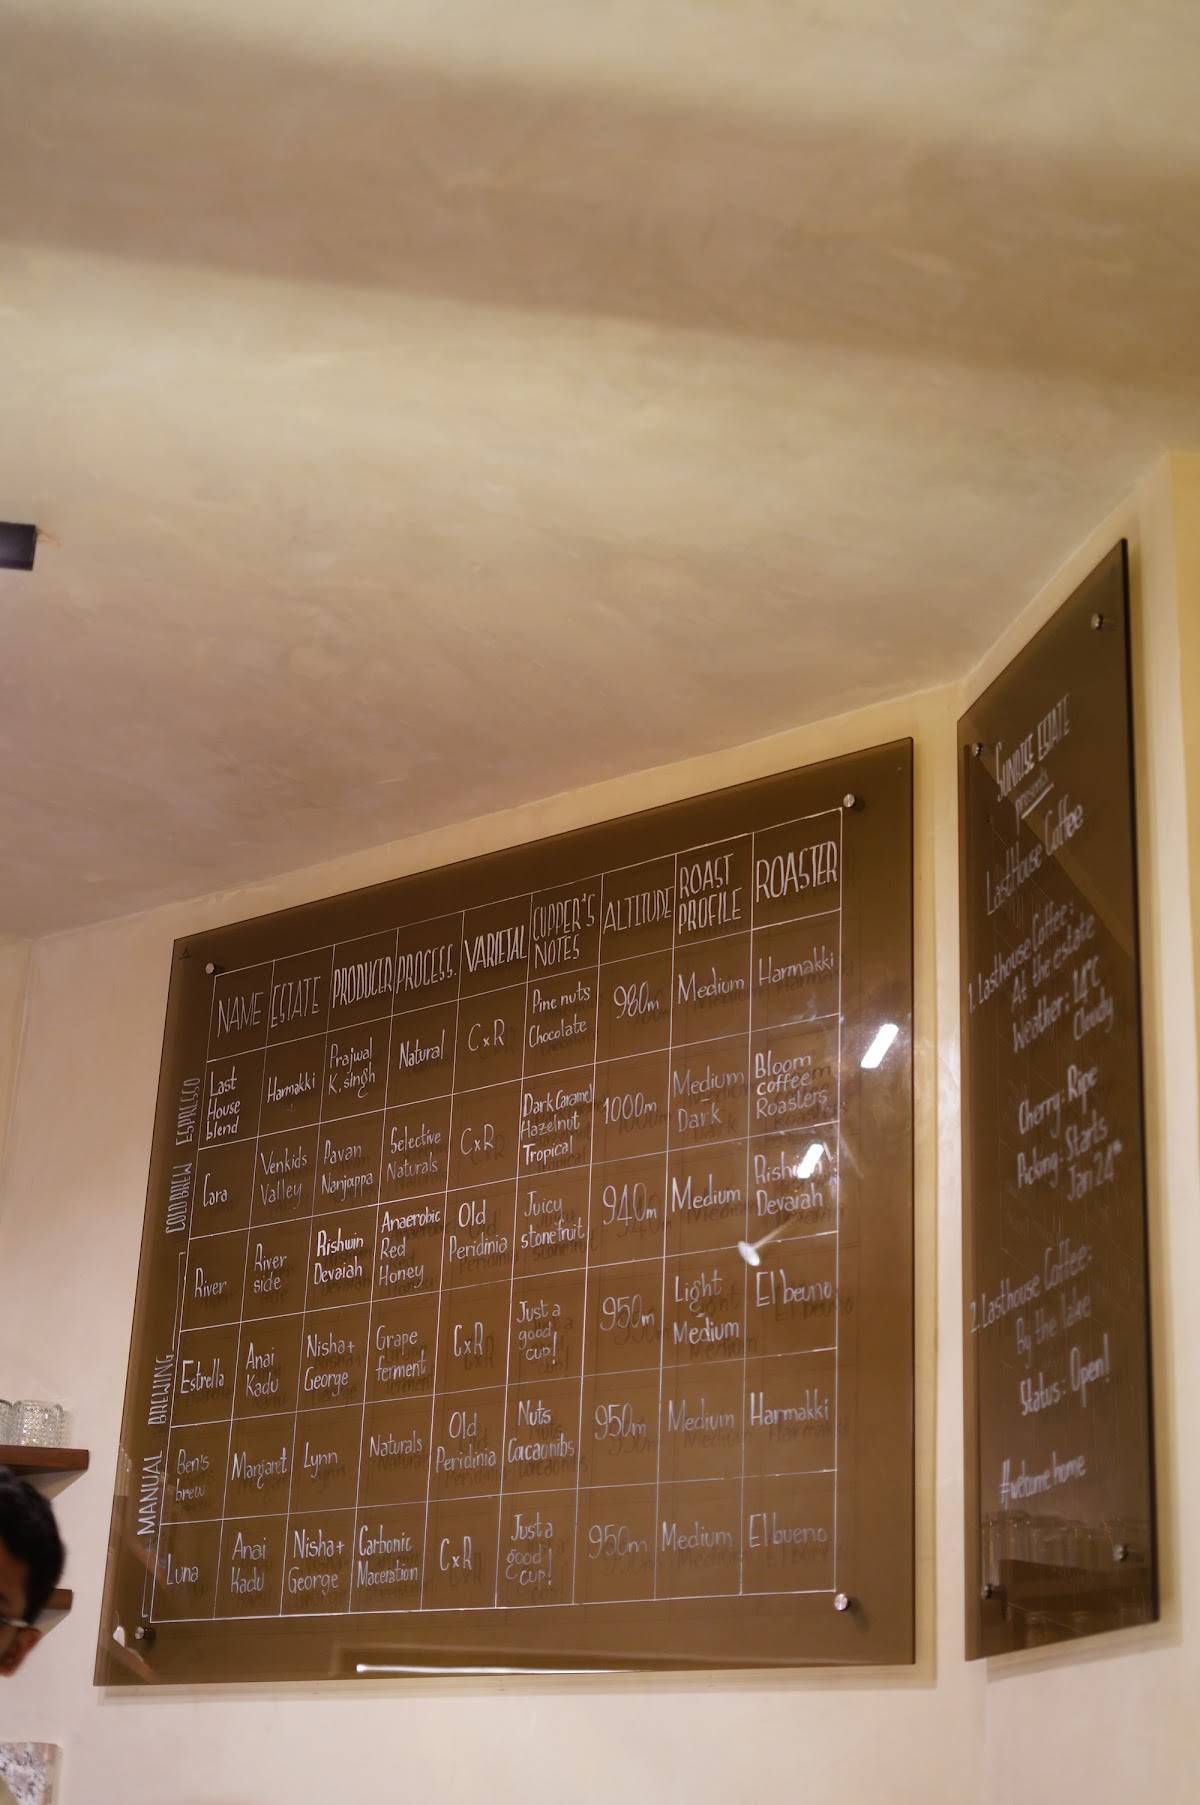 NAME ESTATE PRODUCER PROCESS. VARIETAL CUPPER'S NOTES ALTITUDE ROAST PROFILE ROASTER
ESPRESSO
Last House blend Harmakki Prajwal K. singh Natural CxR Pine nuts Chocolate 980m Medium Harmakki
COLD BREW
Cara Venkids Valley Pavan Nanjappa Selective Naturals CxR Dark Caramel Hazelnut Tropical 1000m Medium Dark Bloom coffee Roasters
MANUAL BREWING
River River side Rishwin Devaiah Anaerobic Red Honey Old Peridinia Juicy stonefruit 940m Medium Rishwin Devaiah
Estrella Anai Kadu Nisha+ George Grape ferment CxR Just a good cup! 950m Light - Medium El beuno
Ben's brew Margaret Lynn Naturals Old Peridinia Nuts Cacaonibs 950m Medium Harmakki
Luna Anai Kadu Nisha+ George Carbonic Maceration CxR Just a good cup! 950m Medium El bueno
SUNRISE ESTATE
presents
LastHouse Coffee
1. Lasthouse Coffee:
At the estate
Weather: 14°C
Cloudy
Cherry: Ripe
Picking: Starts
Jan 24th
2. Lasthouse Coffee:
By the lake
Status: Open!
#welcome home